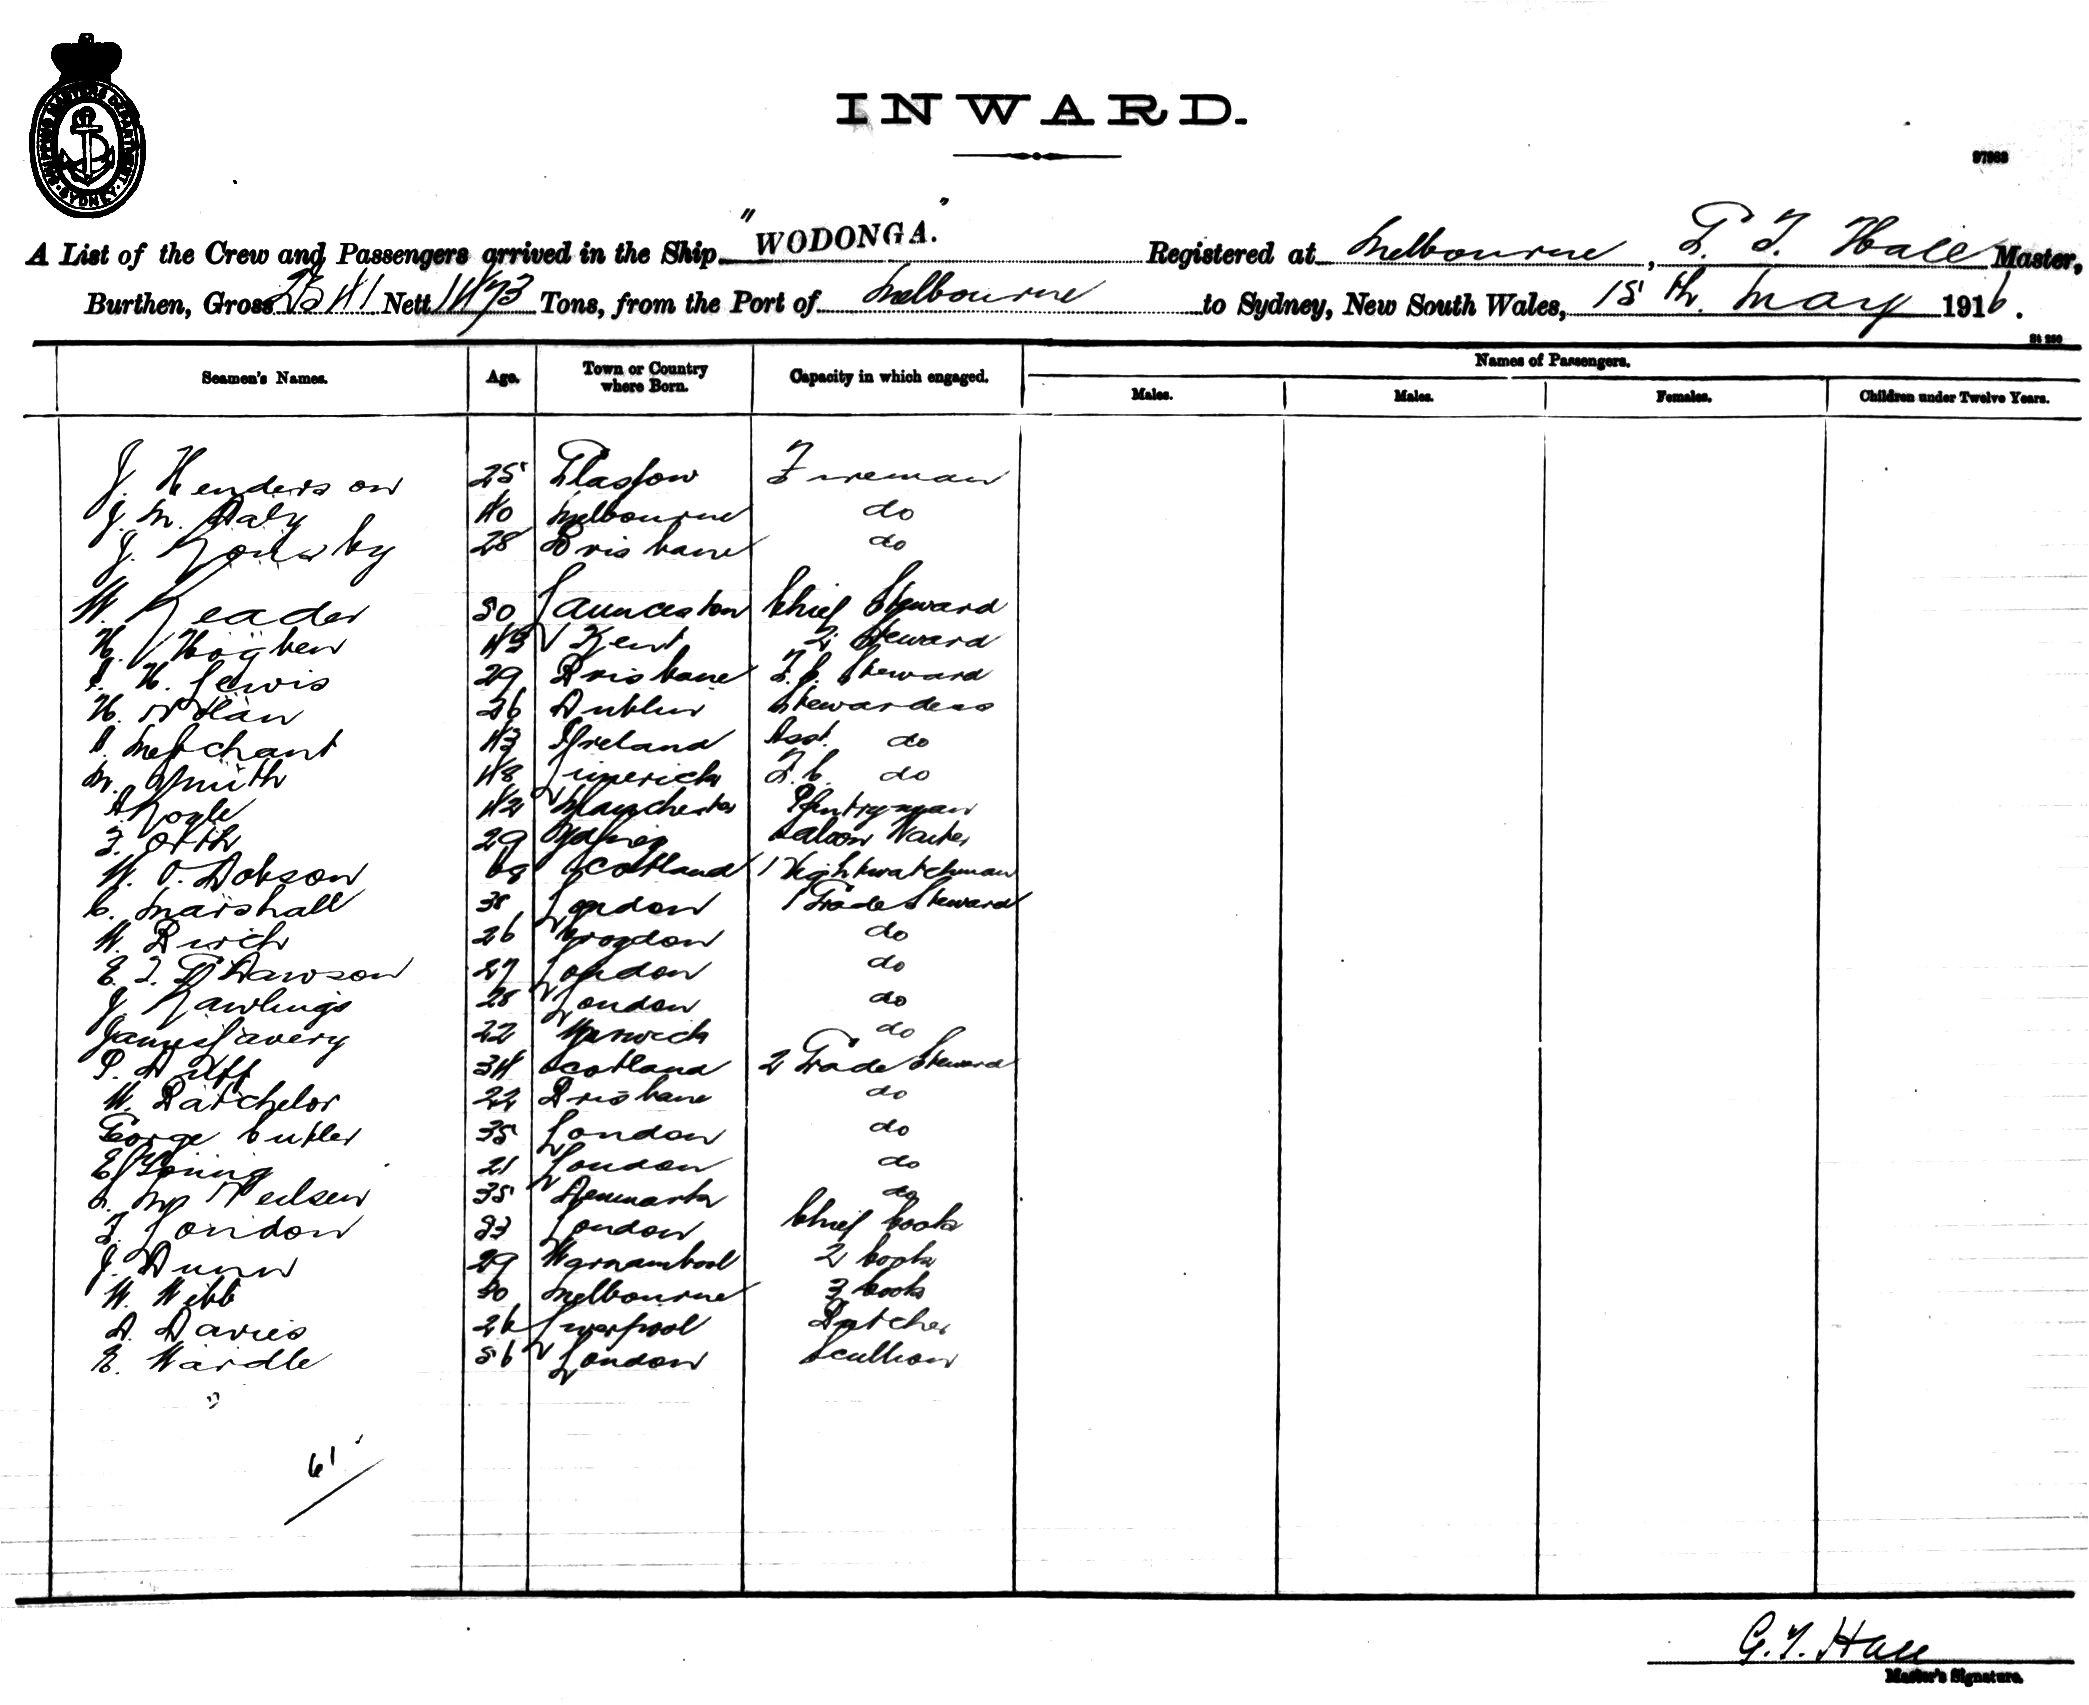 SHIPPING MASTERS DEPARTMENT SYDNEY
INWARD.
97963
A List of the Crew and Passengers arrived in the Ship "WODONGA." Registered at Melbourne, G. T. Hall Master,
Burthen, Gross 2341 Nett 1473 Tons, from the Port of Melbourne to Sydney, New South Wales, 15th. May 1916.
St 250
Seamen's Names. Age. Town or Country where Born. Capacity in which engaged. Names of Passengers.
Males. Males. Females. Children under Twelve Years.
J. Henderson 25 Glasgow Fireman
J. M. Daly 40 Melbourne do
J. 28 Brisbane do
W. Reader 50 Launceston Chief Steward
H. Hogben 43 Kent 2 Steward
H. Lewis 29 Brisbane F.C. Steward
H. Nolan 26 Dublin Stewardess
Merchant 43 Ireland Asst. do
M. Smith 48 Limerick F.C. do
A 42 Manchester Pantryman
F. Orth 29 Sydney Saloon Waiter
W. O. Dobson 68 Scotland 1 Nightwatchman
C. Marshall London 1 Grade Steward
W. Birch 26 Croydon do
E. T. G. Dawson 27 London do
J. Rawlings 28 London do
James Lavery 22 do
P. Duff 34 Scotland 2 Grade Steward
W. Batchelor 22 Brisbane do
George Cutler 35 London do
E. Young 21 London do
Neilsen 35 Denmark do
F. London 33 London Chief Cook
J. Dunn 29 Warnambool 2 Cook
W. Webb 50 Melbourne 3 Cook
D. Davies 26 Liverpool Butcher
E. Wardle 56 London Scullion
61
G. T. Hall
Master's Signature.